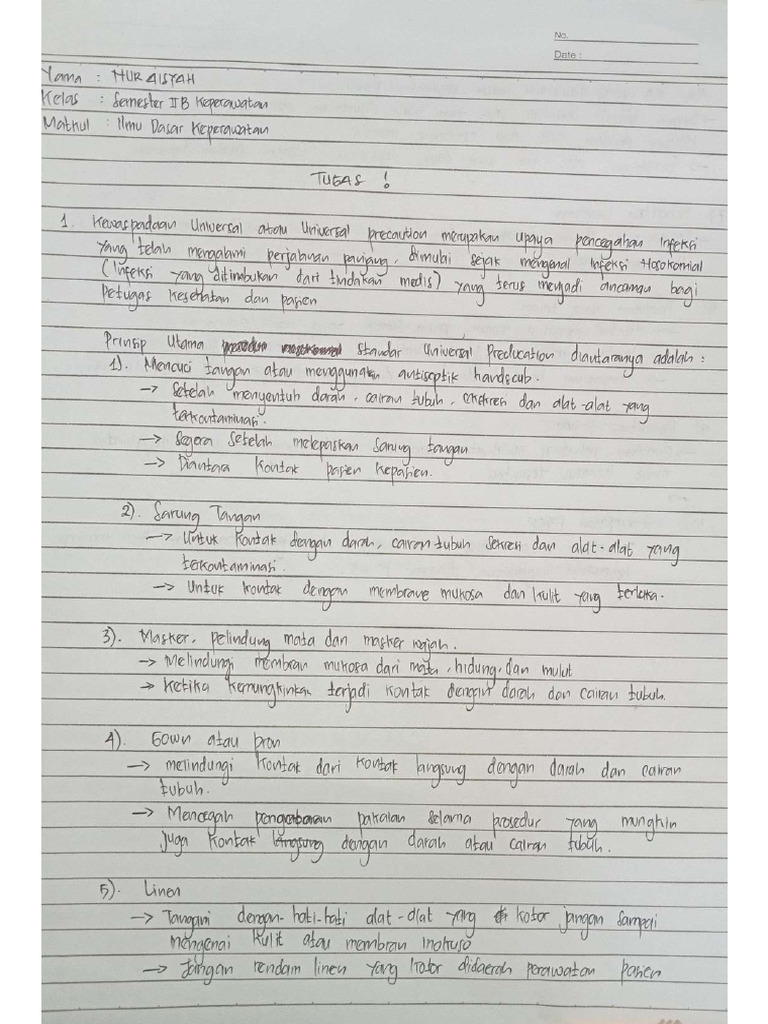 No.
Date :
Nama : NUR AISYAH
Kelas : Semester II B Keperawatan
Matkul : Ilmu Dasar Keperawatan
TUGAS !
1. Kewaspadaan Universal atau Universal precaution merupakan upaya pencegahan Infeksi
yang telah mengalami perjalanan panjang, dimulai sejak mengenal infeksi Hosokomial
(Infeksi yang ditimbukan dari tindakan medis) yang terus menjadi ancaman bagi
Petugas Kesehatan dan pasien
Prinsip Utama standar Universal Preducation diantaranya adalah :
1). Mencuci tangan atau menggunakan antiseptik handscub.
→ Setelah menyentuh darah, cairan tubuh, dan alat-alat yang
terkontaminasi.
→ Segera setelah melepaskan sarung tangan
→ Diantara kontak pasien kepasien.
2). Sarung Tangan
→ Untuk kontak dengan darah, cairan tubuh sekresi dan alat-alat yang
terkontaminasi.
→ Untuk kontak dengan membrave mukosa dan kulit yang terluka.
3). Masker, pelindung mata dan masker wajah.
→ Melindungi membran mukosa dari mata, hidung, dan mulut
→ Ketika kemungkinkan terjadi kontak dengan darah dan cairan tubuh.
4). Gown atau pron
→ melindungi kontak dari kontak langsung dengan darah dan cairan
tubuh.
→ Mencegah pakaian selama prosedur yang mungkin
juga kontak langsung dengan darah atau cairan tubuh.
5). Linen
→ Tangani dengan hati-hati alat-alat yang kotor jangan sampai
mengenai kulit atau membran
→ Jangan rendam linen yang kotor didaerah perawatan pasien